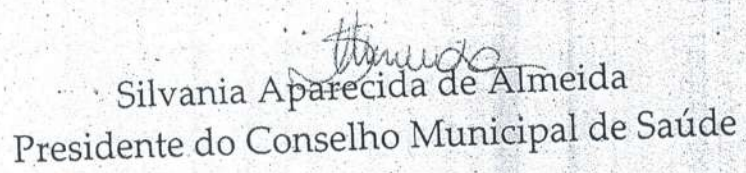 Silvania Aparecida de Almeida
Presidente do Conselho Municipal de Saúde